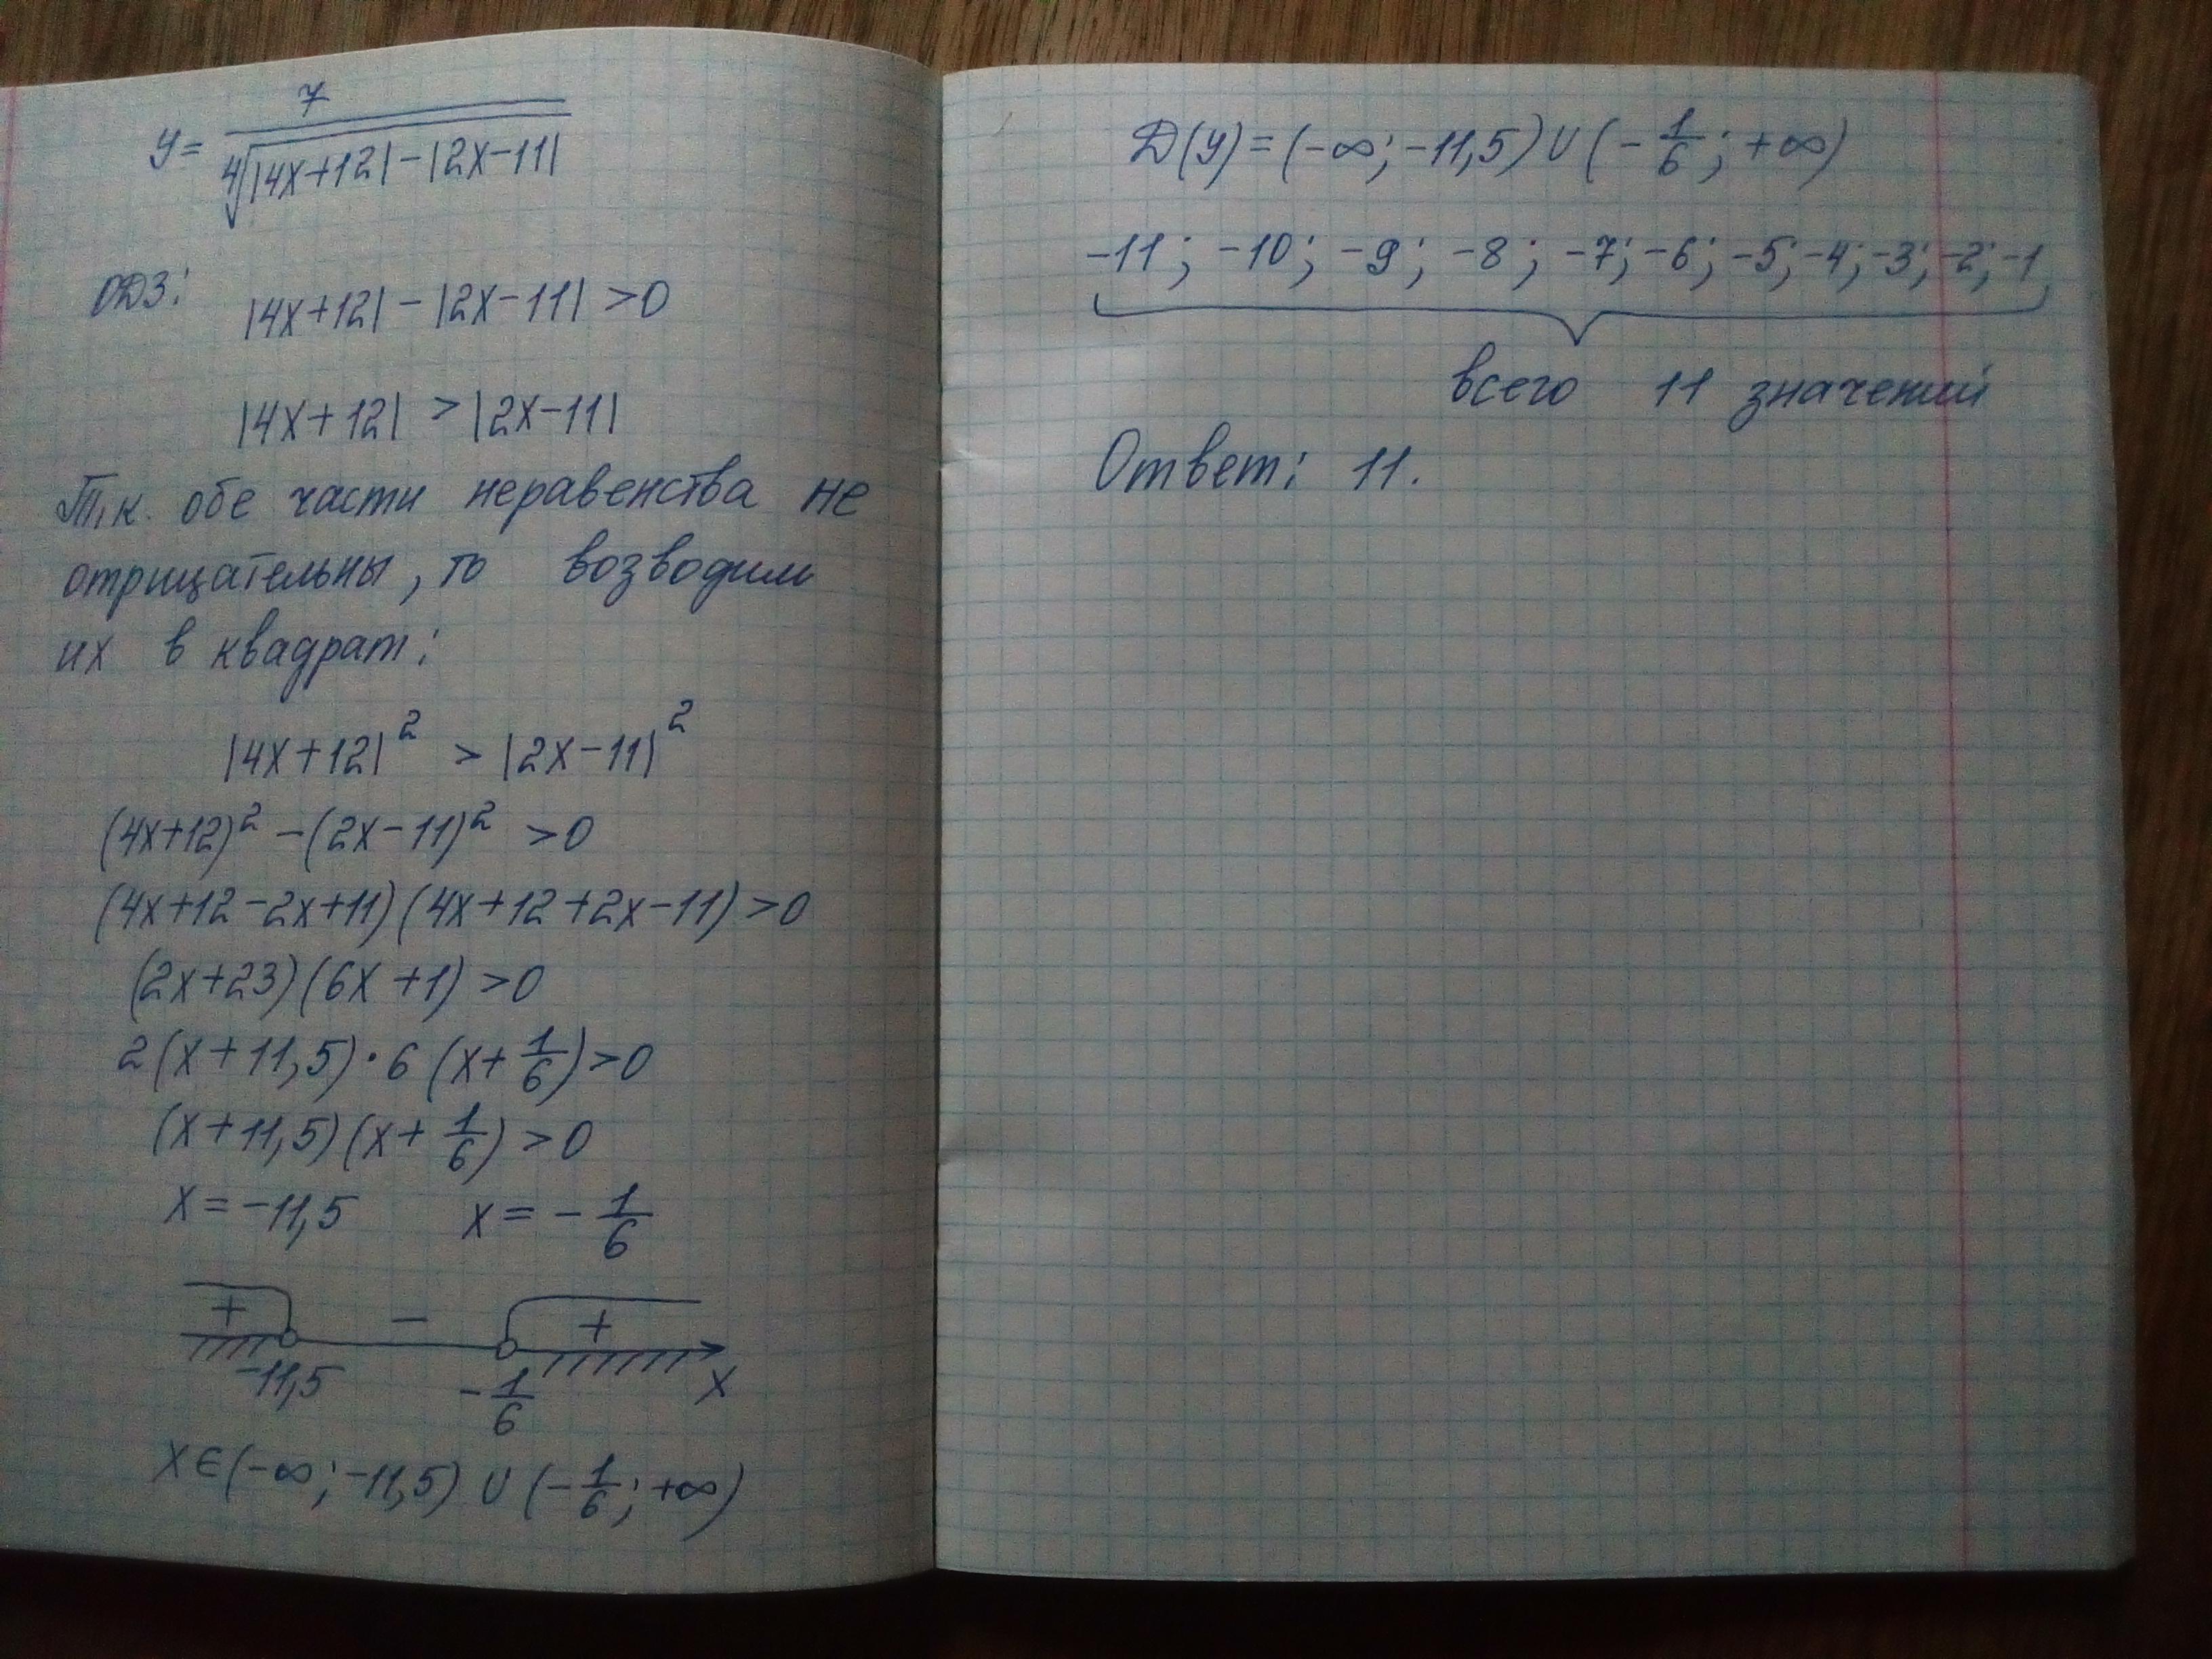 y = 7 / ⁴√(|4x+12| − |2x−11|)
ОДЗ: |4x+12| − |2x−11| > 0
|4x+12| > |2x−11|
Т.к. обе части неравенства не
отрицательны, то возводим
их в квадрат:
|4x+12|² > |2x−11|²
(4x+12)² − (2x−11)² > 0
(4x+12−2x+11)(4x+12+2x−11) > 0
(2x+23)(6x+1) > 0
2(x+11,5)·6(x+1/6) > 0
(x+11,5)(x+1/6) > 0
x = −11,5 x = −1/6
+ − +
−11,5 −1/6 x
x∈(−∞; −11,5) ∪ (−1/6; +∞)
D(y) = (−∞; −11,5) ∪ (−1/6; +∞)
−11; −10; −9; −8; −7; −6; −5; −4; −3; −2; −1
всего 11 значений
Ответ: 11.